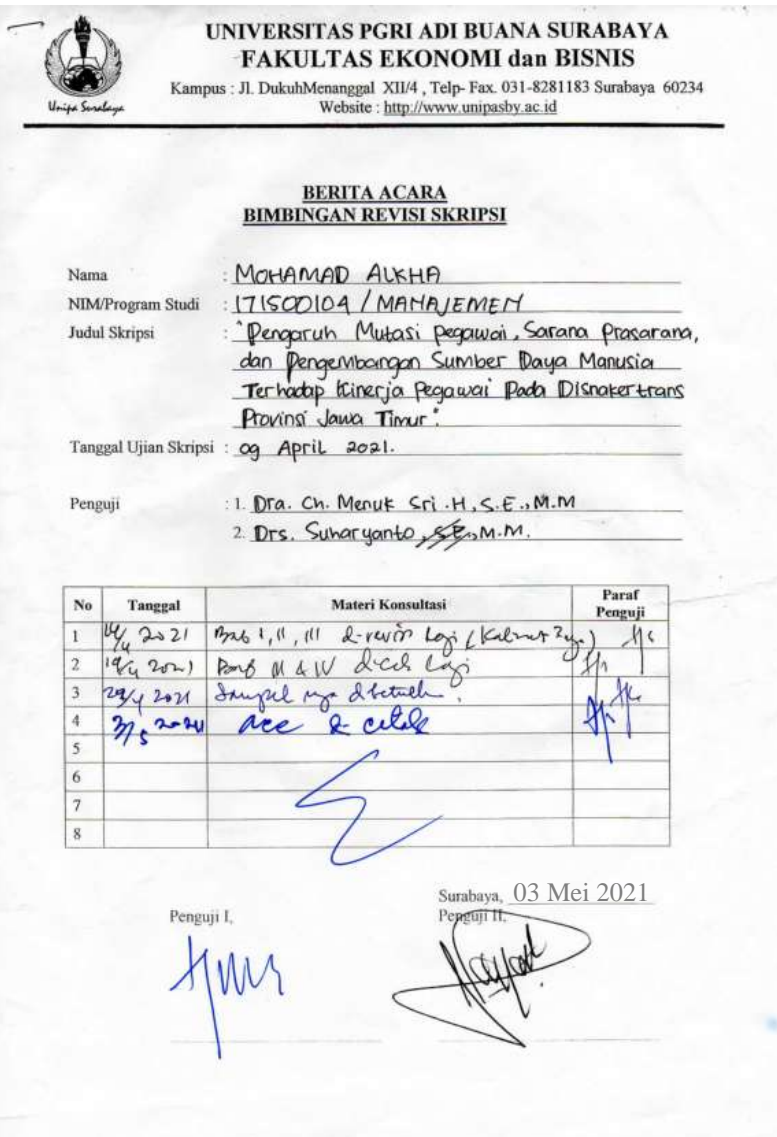 UNIVERSITAS PGRI ADI BUANA SURABAYA
FAKULTAS EKONOMI dan BISNIS
Kampus : Jl. DukuhMenanggal XII/4 , Telp- Fax. 031-8281183 Surabaya 60234
Website : http://www.unipasby.ac.id
Unipa Surabaya
BERITA ACARA
BIMBINGAN REVISI SKRIPSI
Nama : MOHAMAD ALKHA
NIM/Program Studi : 171500104 / MANAJEMEN
Judul Skripsi : "Pengaruh Mutasi pegawai, Sarana Prasarana,
dan Pengembangan Sumber Daya Manusia
Terhadap Kinerja Pegawai Pada Disnakertrans
Provinsi Jawa Timur".
Tanggal Ujian Skripsi : 09 April 2021.
Penguji : 1. Dra. Ch. Menuk Sri .H, S.E., M.M
2. Drs. Suharyanto, S.E., M.M.
No Tanggal Materi Konsultasi Paraf Penguji
1 14/4 2021 Bab I, II, III di-revisi lagi (Kalimat
2 19/4 2021 Bab & IV di-cek lagi
3 29/4 2021 Sampel nya
4 3/5 2021 acc di cetak
5
6
7
8
Surabaya, 03 Mei 2021
Penguji I, Penguji II,